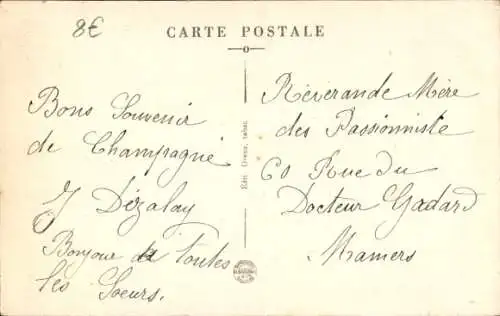 8€
CARTE POSTALE
Bons Souvenir
de Champagne
J Dézalay
Bonjour de Toutes
les Soeurs.
Révérande Mère
des Passionniste
60 Rue du
Docteur Gadard
Mamers